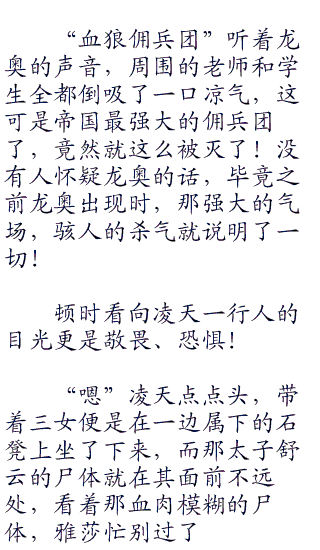 “血狼佣兵团”听着龙
奥的声音，周围的老师和学
生全都倒吸了一口凉气，这
可是帝国最强大的佣兵团
了，竟然就这么被灭了！没
有人怀疑龙奥的话，毕竟之
前龙奥出现时，那强大的气
场，骇人的杀气就说明了一
切！
顿时看向凌天一行人的
目光更是敬畏、恐惧！
“嗯”凌天点点头，带
着三女便是在一边属下的石
凳上坐了下来，而那太子舒
云的尸体就在其面前不远
处，看着那血肉模糊的尸
体，雅莎忙别过了